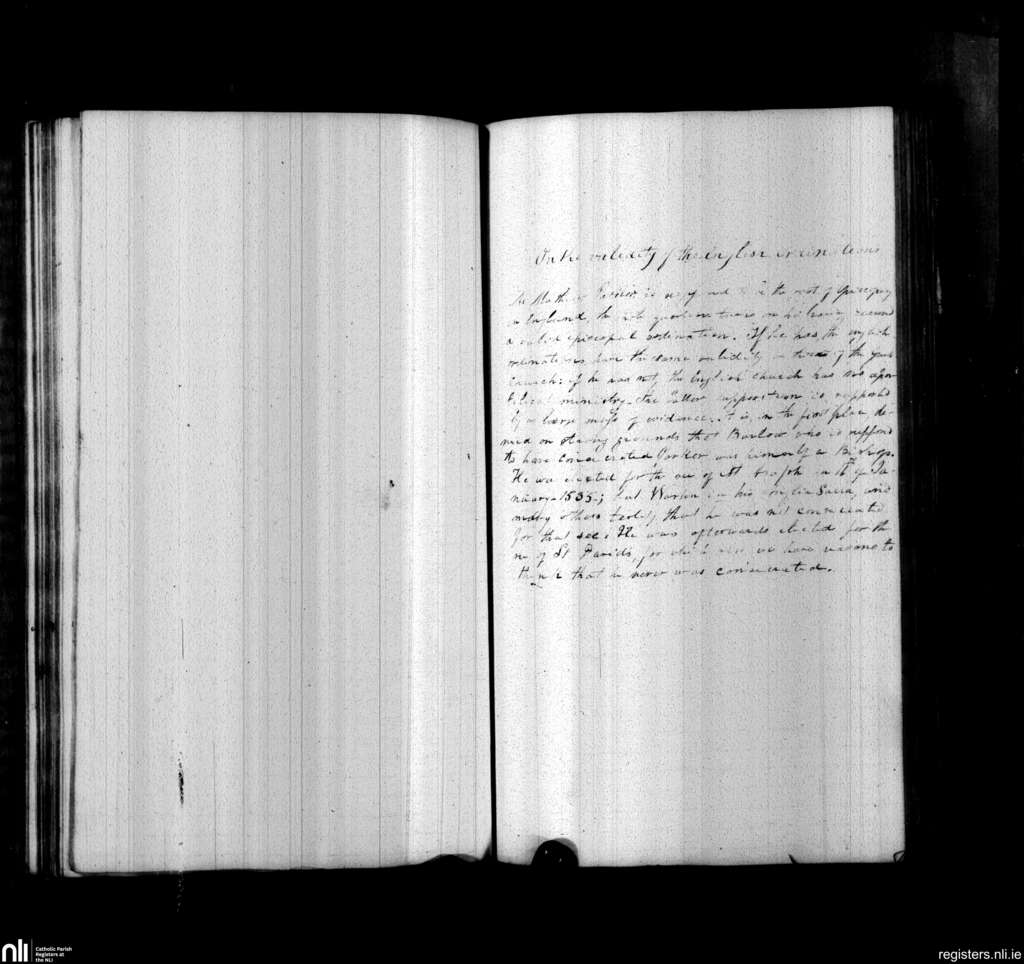 On the validity of the English ordinations
As Mathew Parker is the root of Episcopacy
in England, the whole question turns on his having received
a valid episcopal ordination. If he has the english
ordinations have the same validity as those of the
church: if he has not, the English church has no apos
tolical ministry. The latter supposition is supported
by a large mass of evidence. It is in the first place de-
nied on strong grounds that Barlow who is suppos'd
to have consecrated Parker was himself a Bishop.
He was elected for the see of St Asaph on 16th of Ja-
nuary 1535; but Warton in his Anglia Sacra, and
many others testify that he was not consecrated
for that see. He was afterwards elected for the
see of St Davids, for which also we have reasons to
think that he never was consecrated.
nli
Catholic Parish
Registers at
the NLI
registers.nli.ie